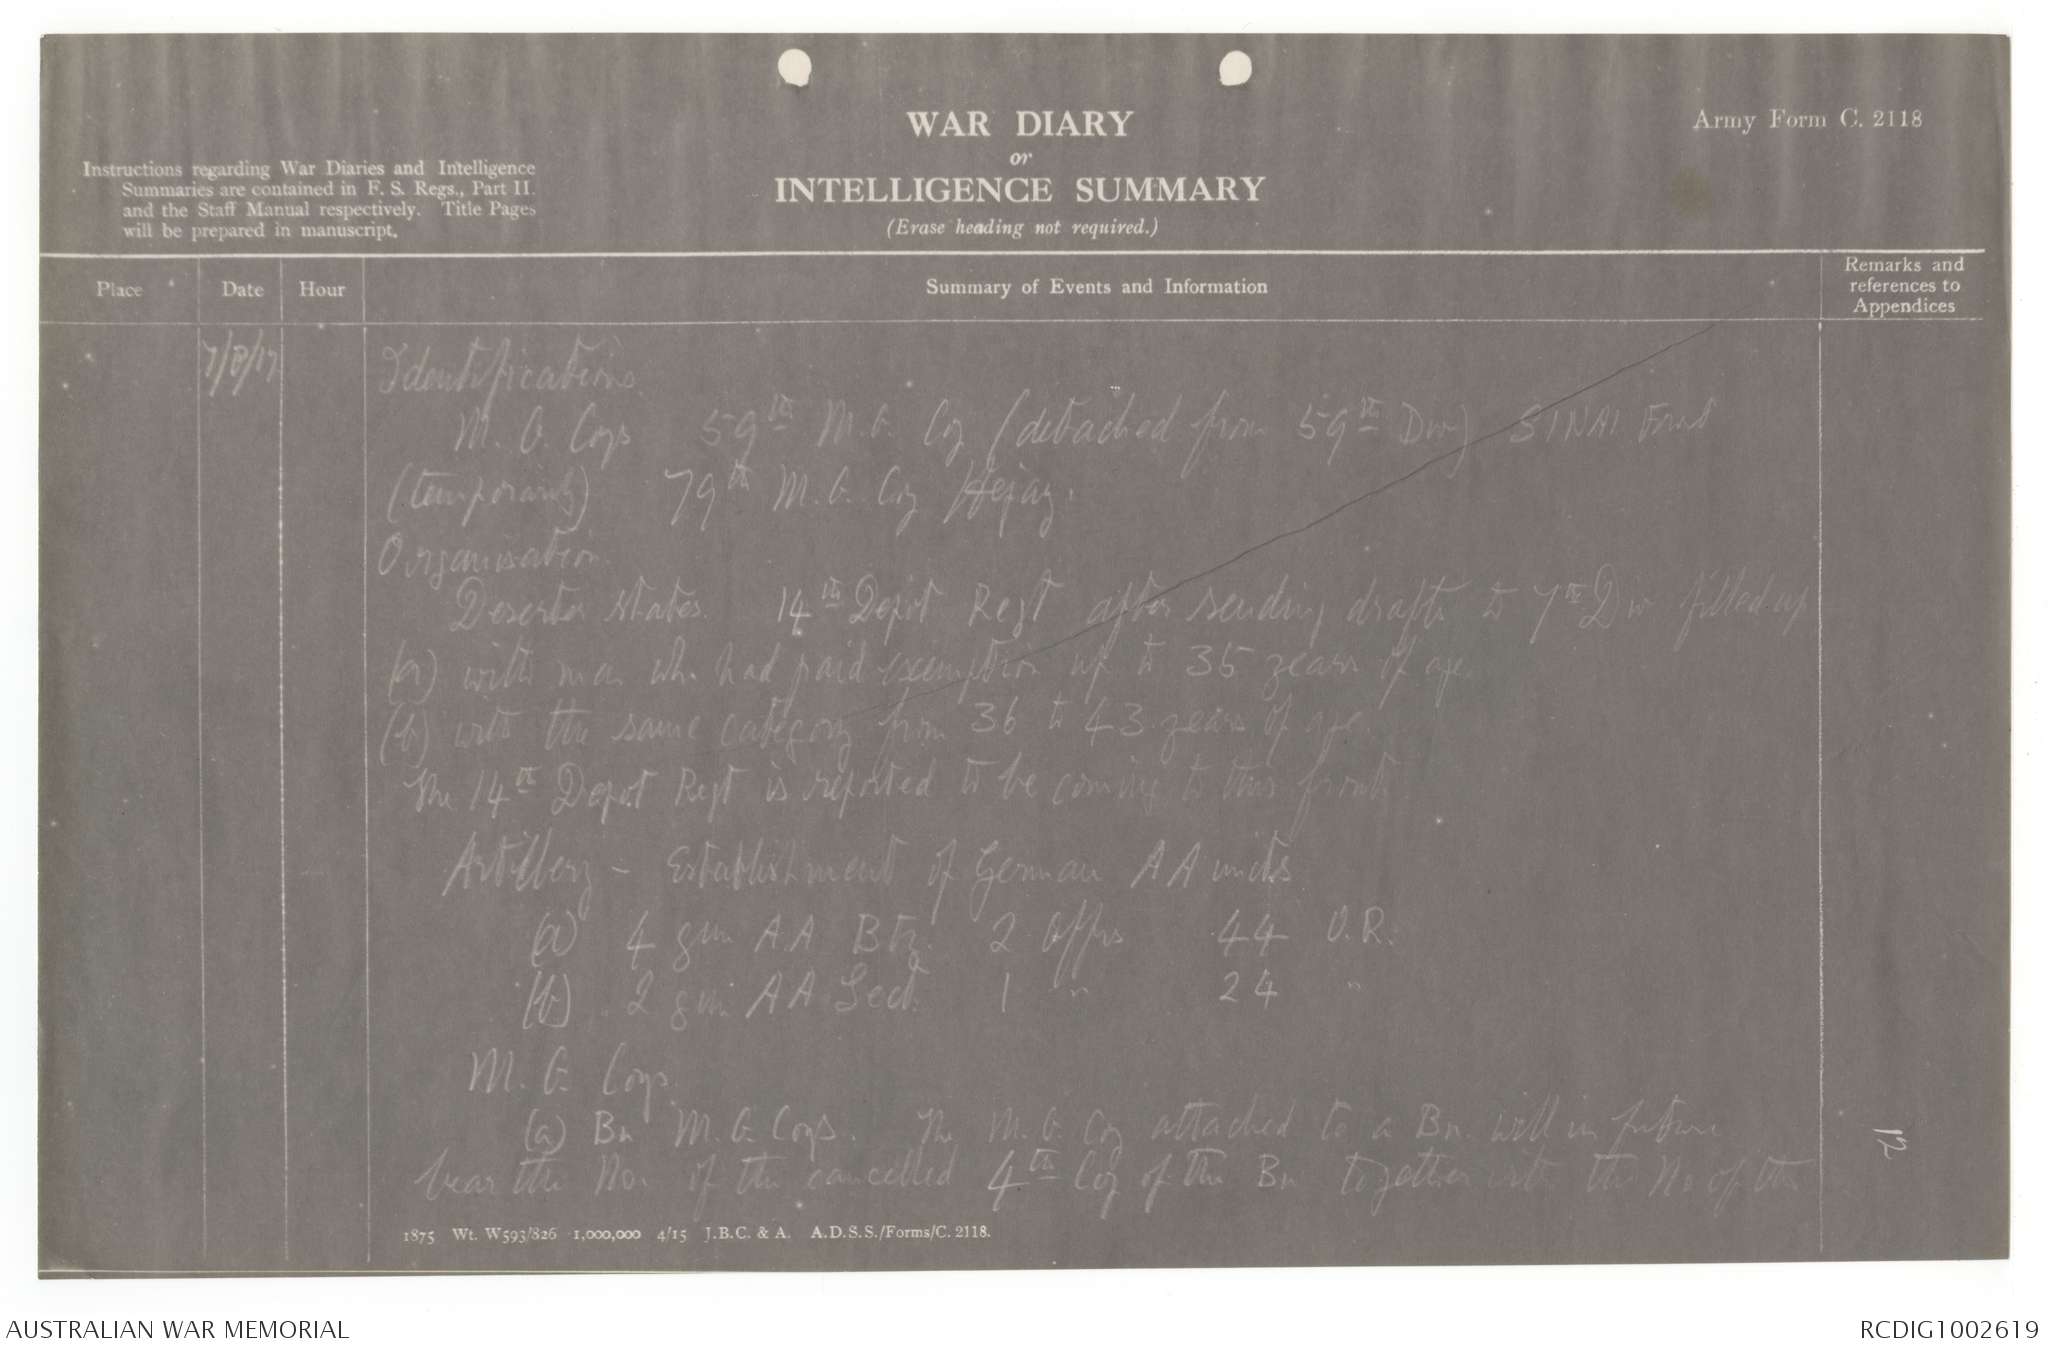 WAR DIARY
or
INTELLIGENCE SUMMARY
(Erase heading not required.)
Army Form C. 2118
Instructions regarding War Diaries and Intelligence
Summaries are contained in F. S. Regs., Part II.
and the Staff Manual respectively. Title Pages
will be prepared in manuscript.
Place
Date
Hour
Summary of Events and Information
Remarks and
references to
Appendices
7/8/17
Identifications.
M. G. Coys 59th M.G. Coy (detached from 59th Div) SINAI Front
(temporarily) 79th M.G. Coy Hejaz.
Organisation.
Deserter states. 14th Depot Regt after sending drafts to 7th Div filled up
(a) with men who had paid exemption up to 35 years of age.
(b) with the same category from 36 to 43 years of age.
The 14th Depot Regt is reported to be coming to this front
Artillery - Establishment of German AA units
(a) 4 gun A.A Bty. 2 Offrs 44 O.R.
(b) 2 gun AA Sect. 1 " 24 "
M. G. Coys.
(a) Bn M.G. Coys. The M.G. Coy attached to a Bn. will in future
bear the No. of the cancelled 4th Coy of the Bn together with the No of the
12
1875 Wt. W593/826 1,000,000 4/15 J.B.C. & A. A.D.S.S./Forms/C. 2118.
AUSTRALIAN WAR MEMORIAL
RCDIG1002619